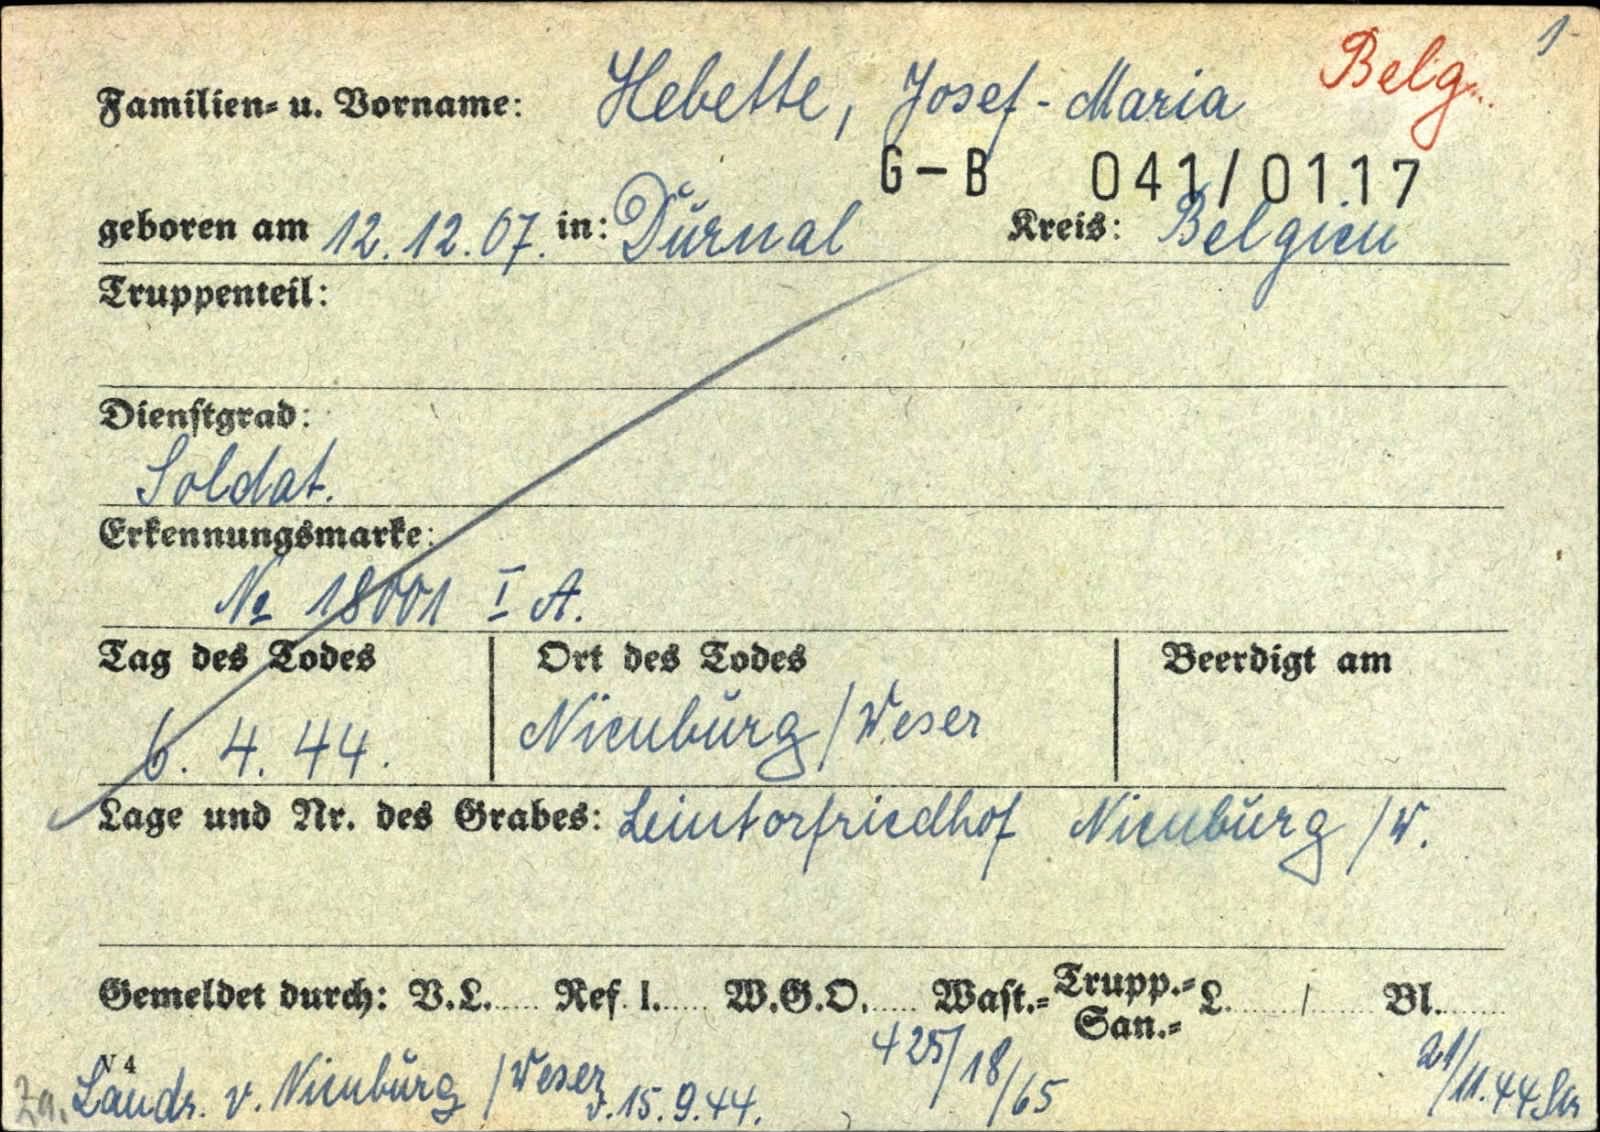 1-
Belg.
Familien- u. Vorname: Hebette, Josef-Maria
G-B 041/0117
geboren am 12.12.07. in: Durnal Kreis: Belgien
Truppenteil:
Dienstgrad:
Soldat.
Erkennungsmarke:
№ 18001 I A.
Tag des Todes Ort des Todes Beerdigt am
6. 4. 44. Nienburg/Weser
Lage und Nr. des Grabes: Leintorfriedhof Nienburg/W.
Gemeldet durch: V.L. Ref. I. W.G.O. Wast.- Trupp.- San.- L. / Bl.
N 4
425/18/65
Landr. v. Nienburg/Weser v. 15.9.44.
21/11.44